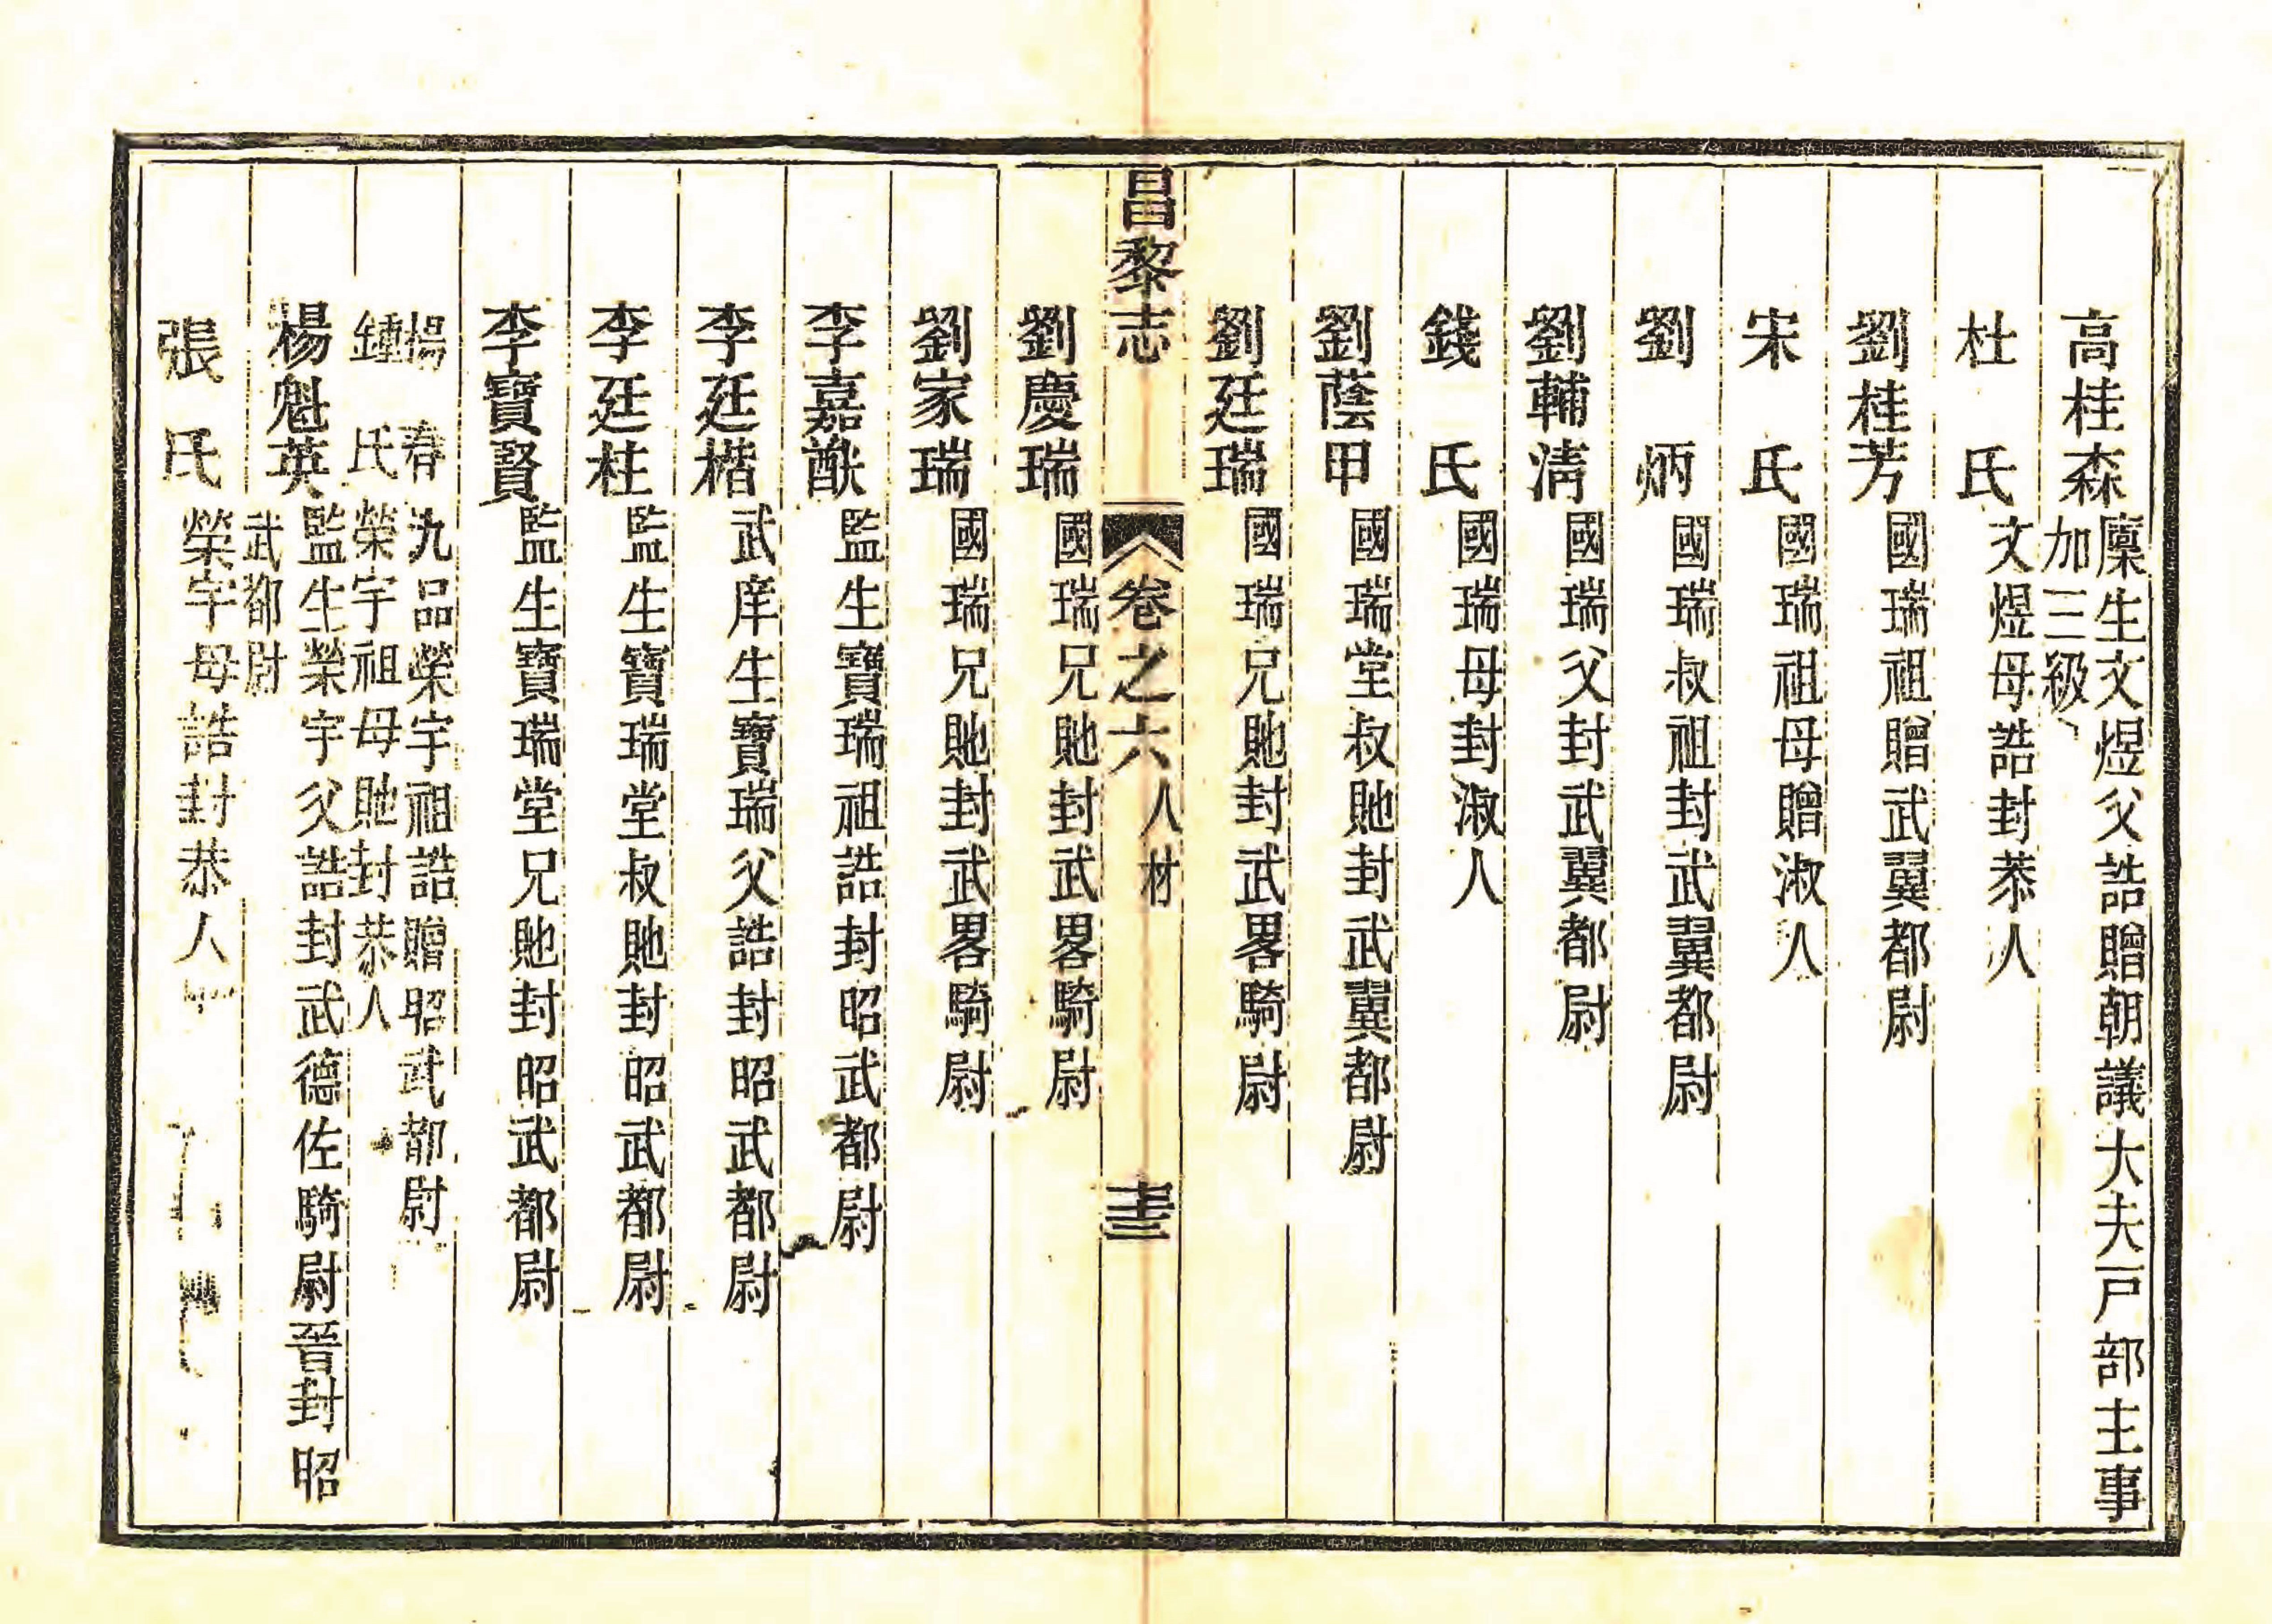 高桂森廩生文煜父誥贈朝議大夫戸部主事
加三級
杜氏文煜母誥封恭人
劉桂芳國瑞祖贈武翼都尉
宋氏國瑞祖母贈淑人
劉炳國瑞叔祖封武翼都尉
劉輔清國瑞父封武翼都尉
錢氏國瑞母封淑人
劉蔭甲國瑞堂叔貤封武翼都尉
劉廷瑞國瑞兄貤封武畧騎尉
昌黎志 卷之六人材 十三
劉慶瑞國瑞兄貤封武畧騎尉
劉家瑞國瑞兄貤封武畧騎尉
李嘉猷監生寶瑞祖誥封昭武都尉
李廷楷武庠生寶瑞父誥封昭武都尉
李廷柱監生寶瑞堂叔貤封昭武都尉
李寶賢監生寶瑞堂兄貤封昭武都尉
楊春九品榮宇祖誥贈昭武都尉
鍾氏榮宇祖母貤封恭人
楊魁英監生榮宇父誥封武德佐騎尉晉封昭
武都尉
張氏榮宇母誥封恭人